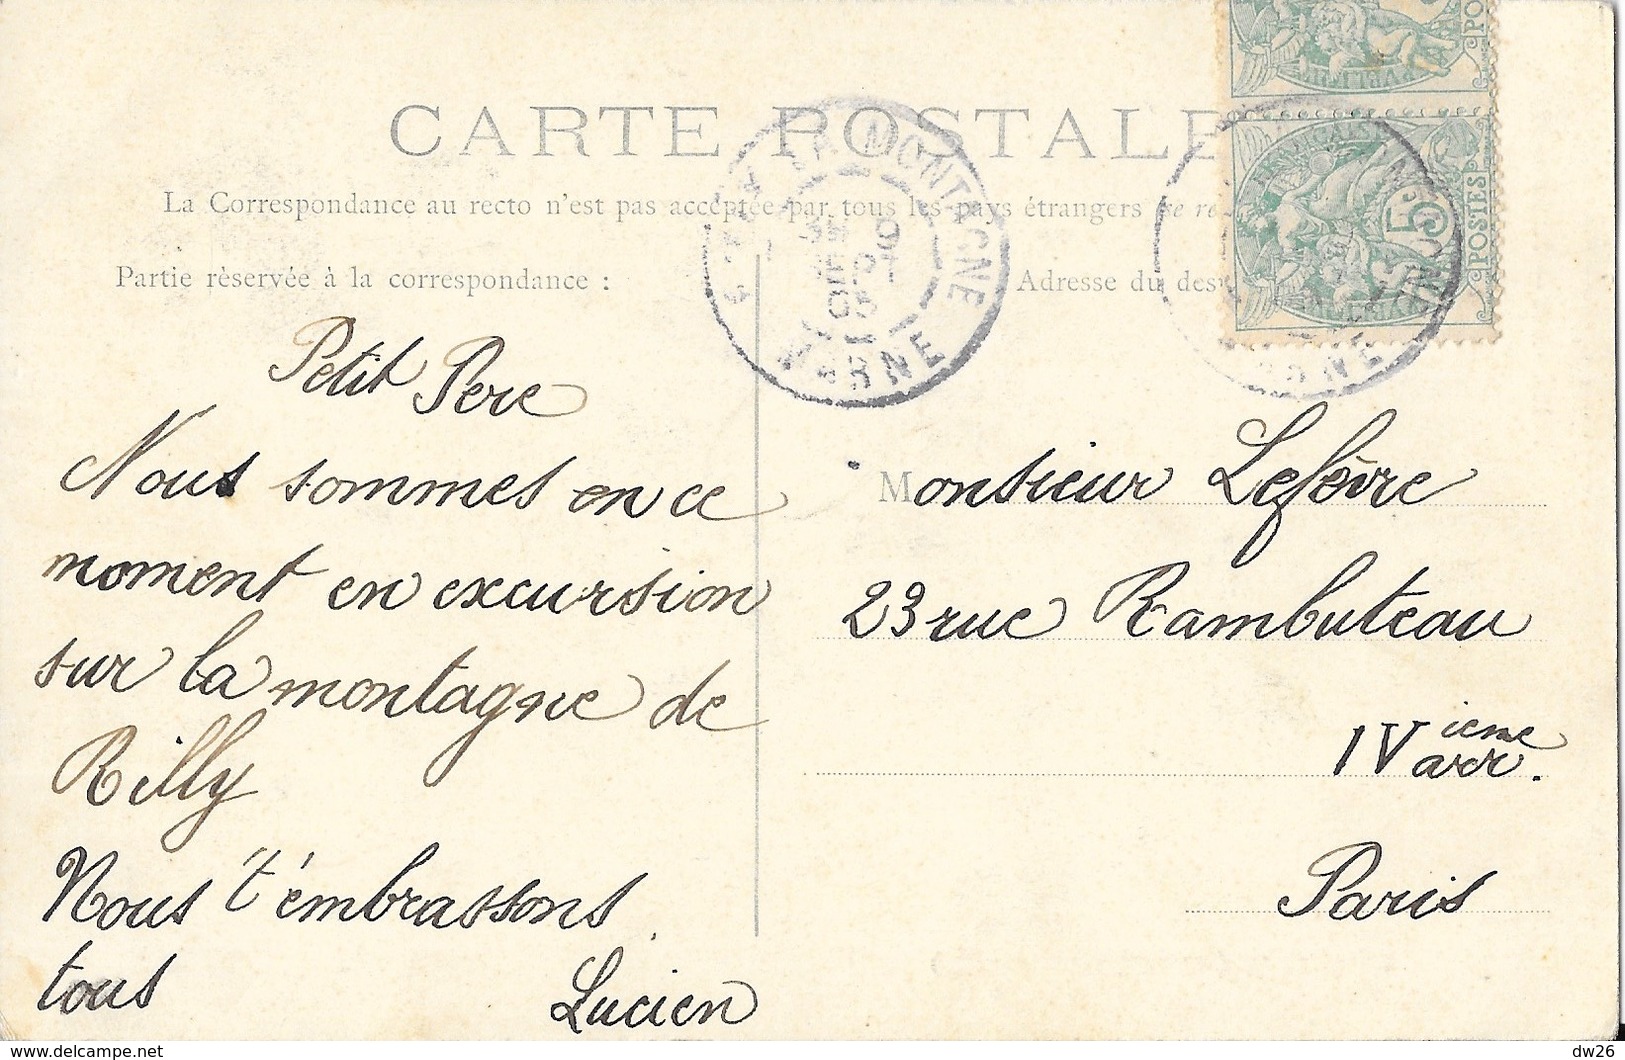 CARTE POSTALE
La Correspondance au recto n'est pas acceptée par tous les pays étrangers (se re
Partie réservée à la correspondance :
Adresse du des
MONTAGNE
MARNE
POSTES
5c
Petit Pere
Nous sommes en ce
moment en excursion
sur la montagne de
Rilly
Nous t'émbrassons
tous
Lucien
Monsieur Lefèvre
23 rue Rambuteau
IVieme arr.
Paris
https://www.delcampe.net
dw26